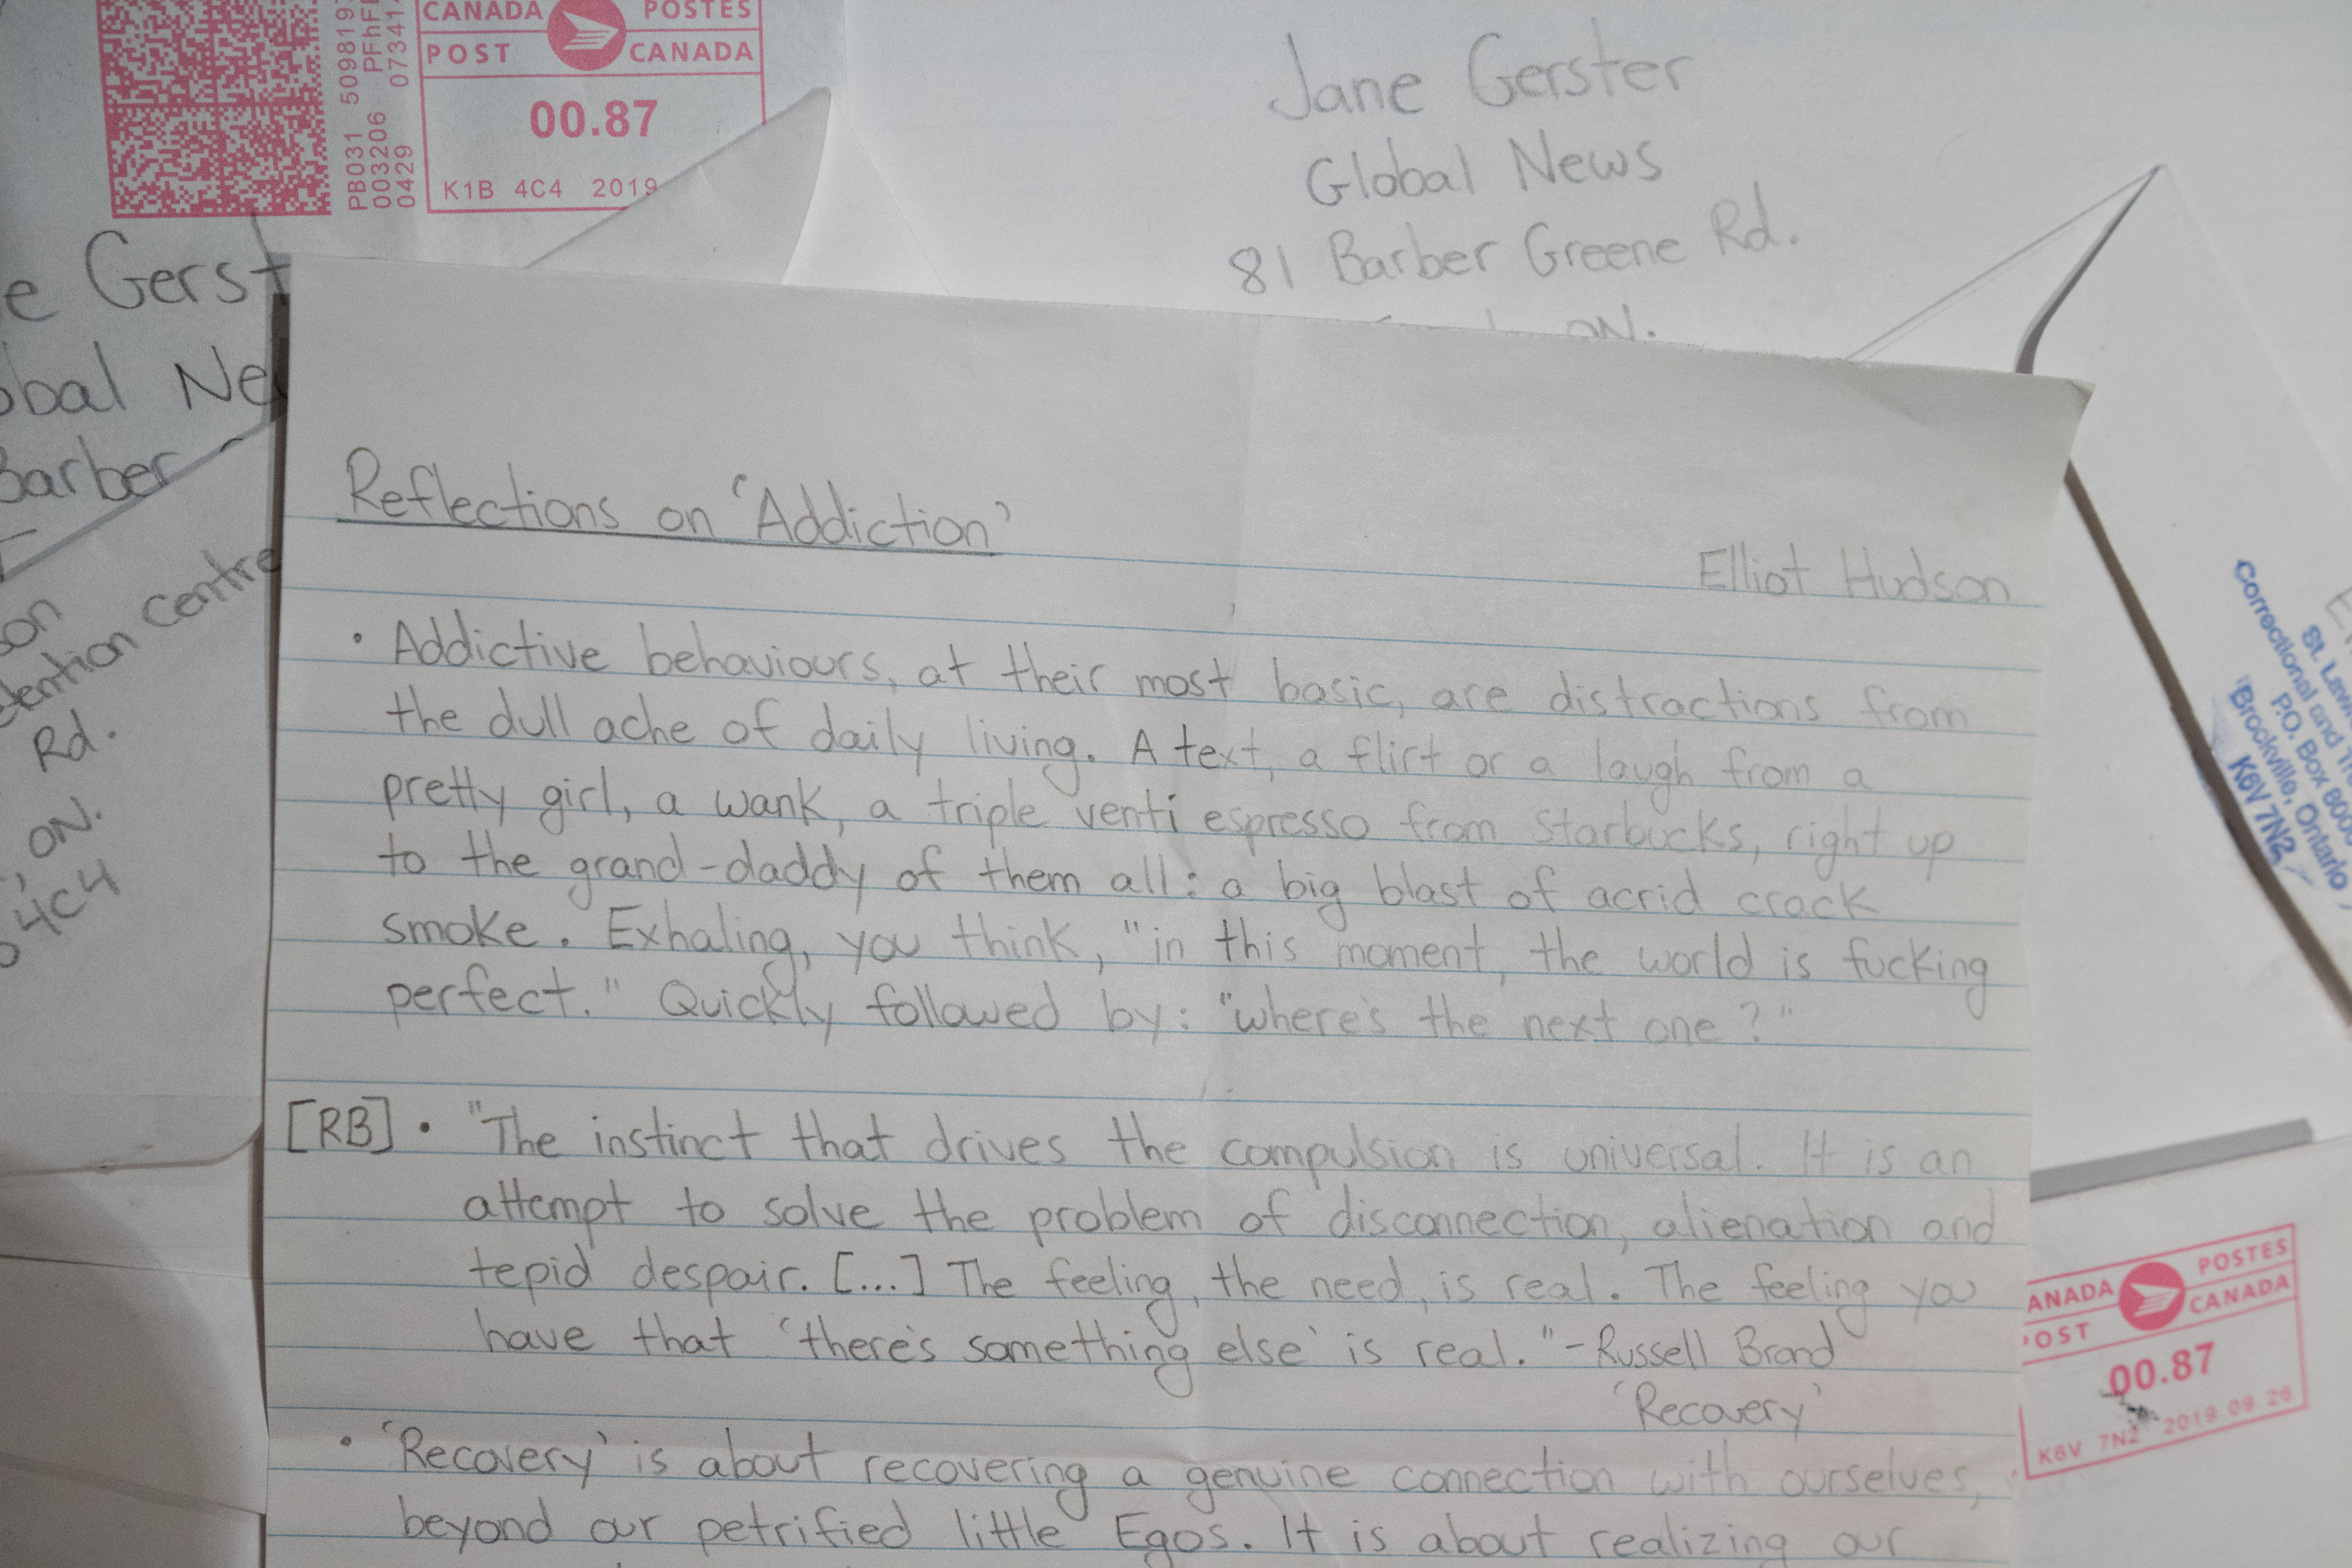 CANADA POSTES
POST CANADA
00.87
K1B 4C4 2019
PB031 5098197
003206 PFhFF
0429 073414
Jane Gerster
Global News
81 Barber Greene Rd.
ON.
e Gerst
obal Ne
Barber
son
tention centre
Rd.
, ON.
4C4
Reflections on 'Addiction'
Elliot Hudson
• Addictive behaviours, at their most basic, are distractions from
the dull ache of daily living. A text, a flirt or a laugh from a
pretty girl, a wank, a triple venti espresso from Starbucks, right up
to the grand-daddy of them all: a big blast of acrid crack
smoke. Exhaling, you think, "in this moment, the world is fucking
perfect." Quickly followed by: "where's the next one?"
[RB] • "The instinct that drives the compulsion is universal. It is an
attempt to solve the problem of disconnection, alienation and
tepid despair. [...] The feeling, the need, is real. The feeling you
have that 'there's something else' is real." - Russell Brand
'Recovery'
• 'Recovery' is about recovering a genuine connection with ourselves,
beyond our petrified little Egos. It is about realizing our
St. Law
Correctional and Tr
P.O. Box 800
Brockville, Ontario
K6V 7N2
ANADA POSTES
POST CANADA
00.87
K6V 7N2 2019 09 26